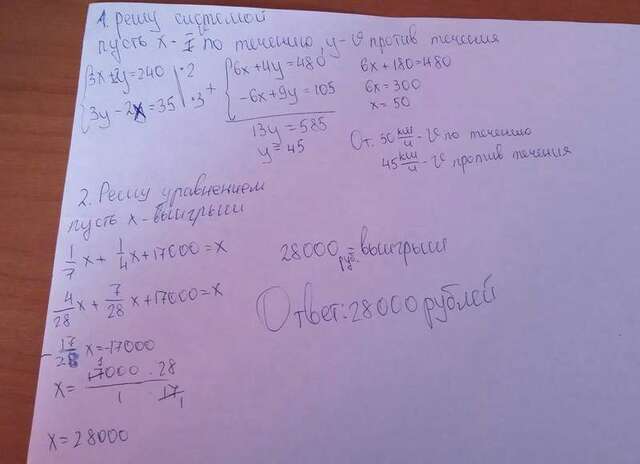 1. решу системой
пусть x - V по течению, y - V против течения
3x+2y=240 | ·2
3y-2x=35 | ·3
+
6x+4y=480
-6x+9y=105
13y=585
y=45
6x+180=480
6x=300
x=50
От. 50 км/ч - V по течению
45 км/ч - V против течения
2. Решу уравнением
пусть x - выигрыш
1/7 x + 1/4 x + 17000 = x
4/28 x + 7/28 x + 17000 = x
-17/28 x = -17000
x = 17000 · 28 / 1 17
x = 28000
28000 руб = выигрыш
Ответ: 28000 рублей